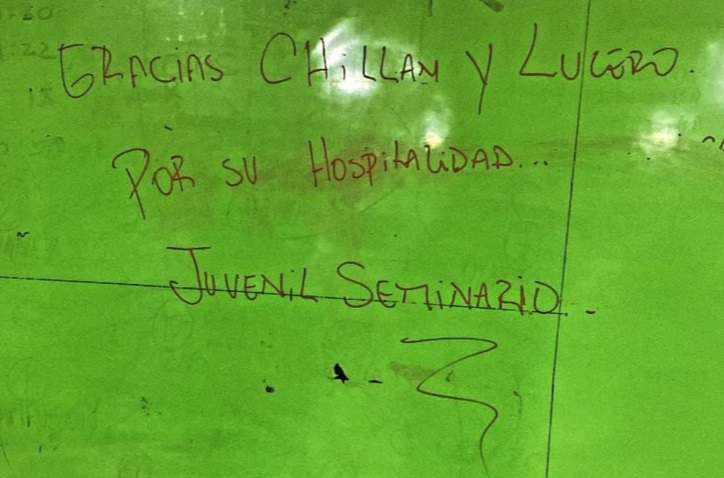 GRACIAS CHILLAN Y LUCERO.
POR SU HOSPITALIDAD...
JUVENIL SEMINARIO.-